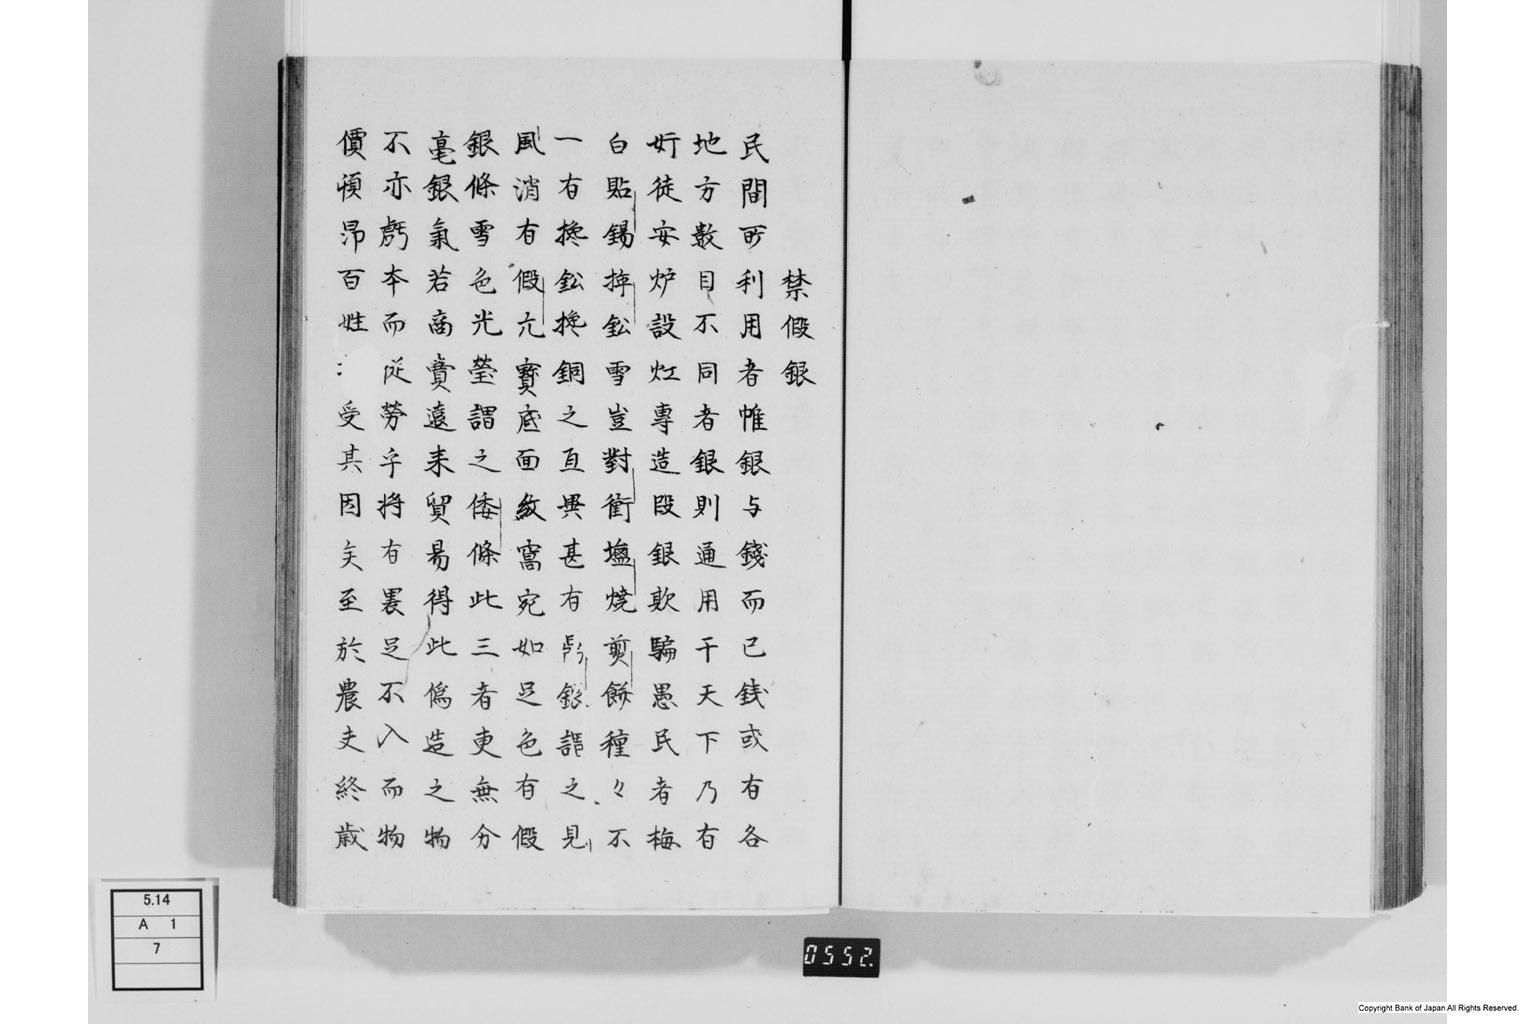 禁假銀
民間所利用者惟銀与錢而已銭或有各
地方數目不同者銀則通用于天下乃有
奸徒安炉設灶專造叚銀欺騙愚民者梅
白貼錫摔鈆雪豈對衝塩燒剪餅種々不
一有搀鈆搀銅之直異甚有銀謂之見
風消有假元寶底面紋窩宛如足色有假
銀條雪色光瑩謂之倭條此三者更無分
毫銀氣若商賣遠来貿易得此偽造之物
不亦虧本而従勞乎将有畏足不入而物
價頓昂百姓受其因矣至於農夫終歳
5.14
A 1
7
0552.
Copyright Bank of Japan All Rights Reserved.